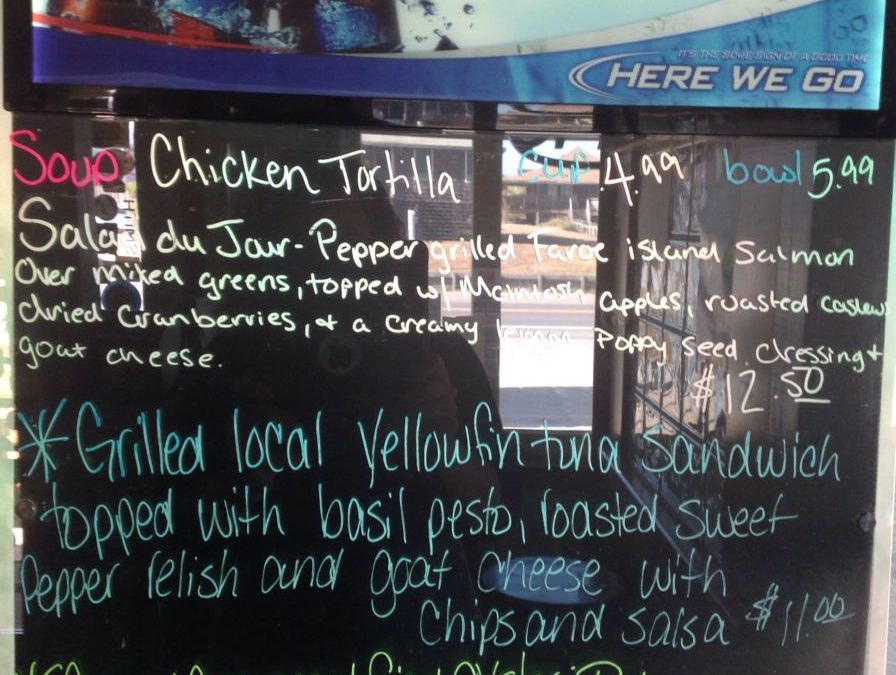 IT'S THE SURE SIGN OF A GOOD TIME
HERE WE GO
Soup Chicken Tortilla cup 4.99 bowl 5.99
Salad du Jour - Pepper grilled Faroe island Salmon
Over mixed greens, topped w/ Macintosh apples, roasted cashews
dried cranberries, & a creamy lemon Poppy seed dressing &
goat cheese.
$12.50
* Grilled local Yellowfin tuna Sandwich
topped with basil pesto, roasted sweet
Pepper relish and goat cheese with
Chips and salsa $11.00